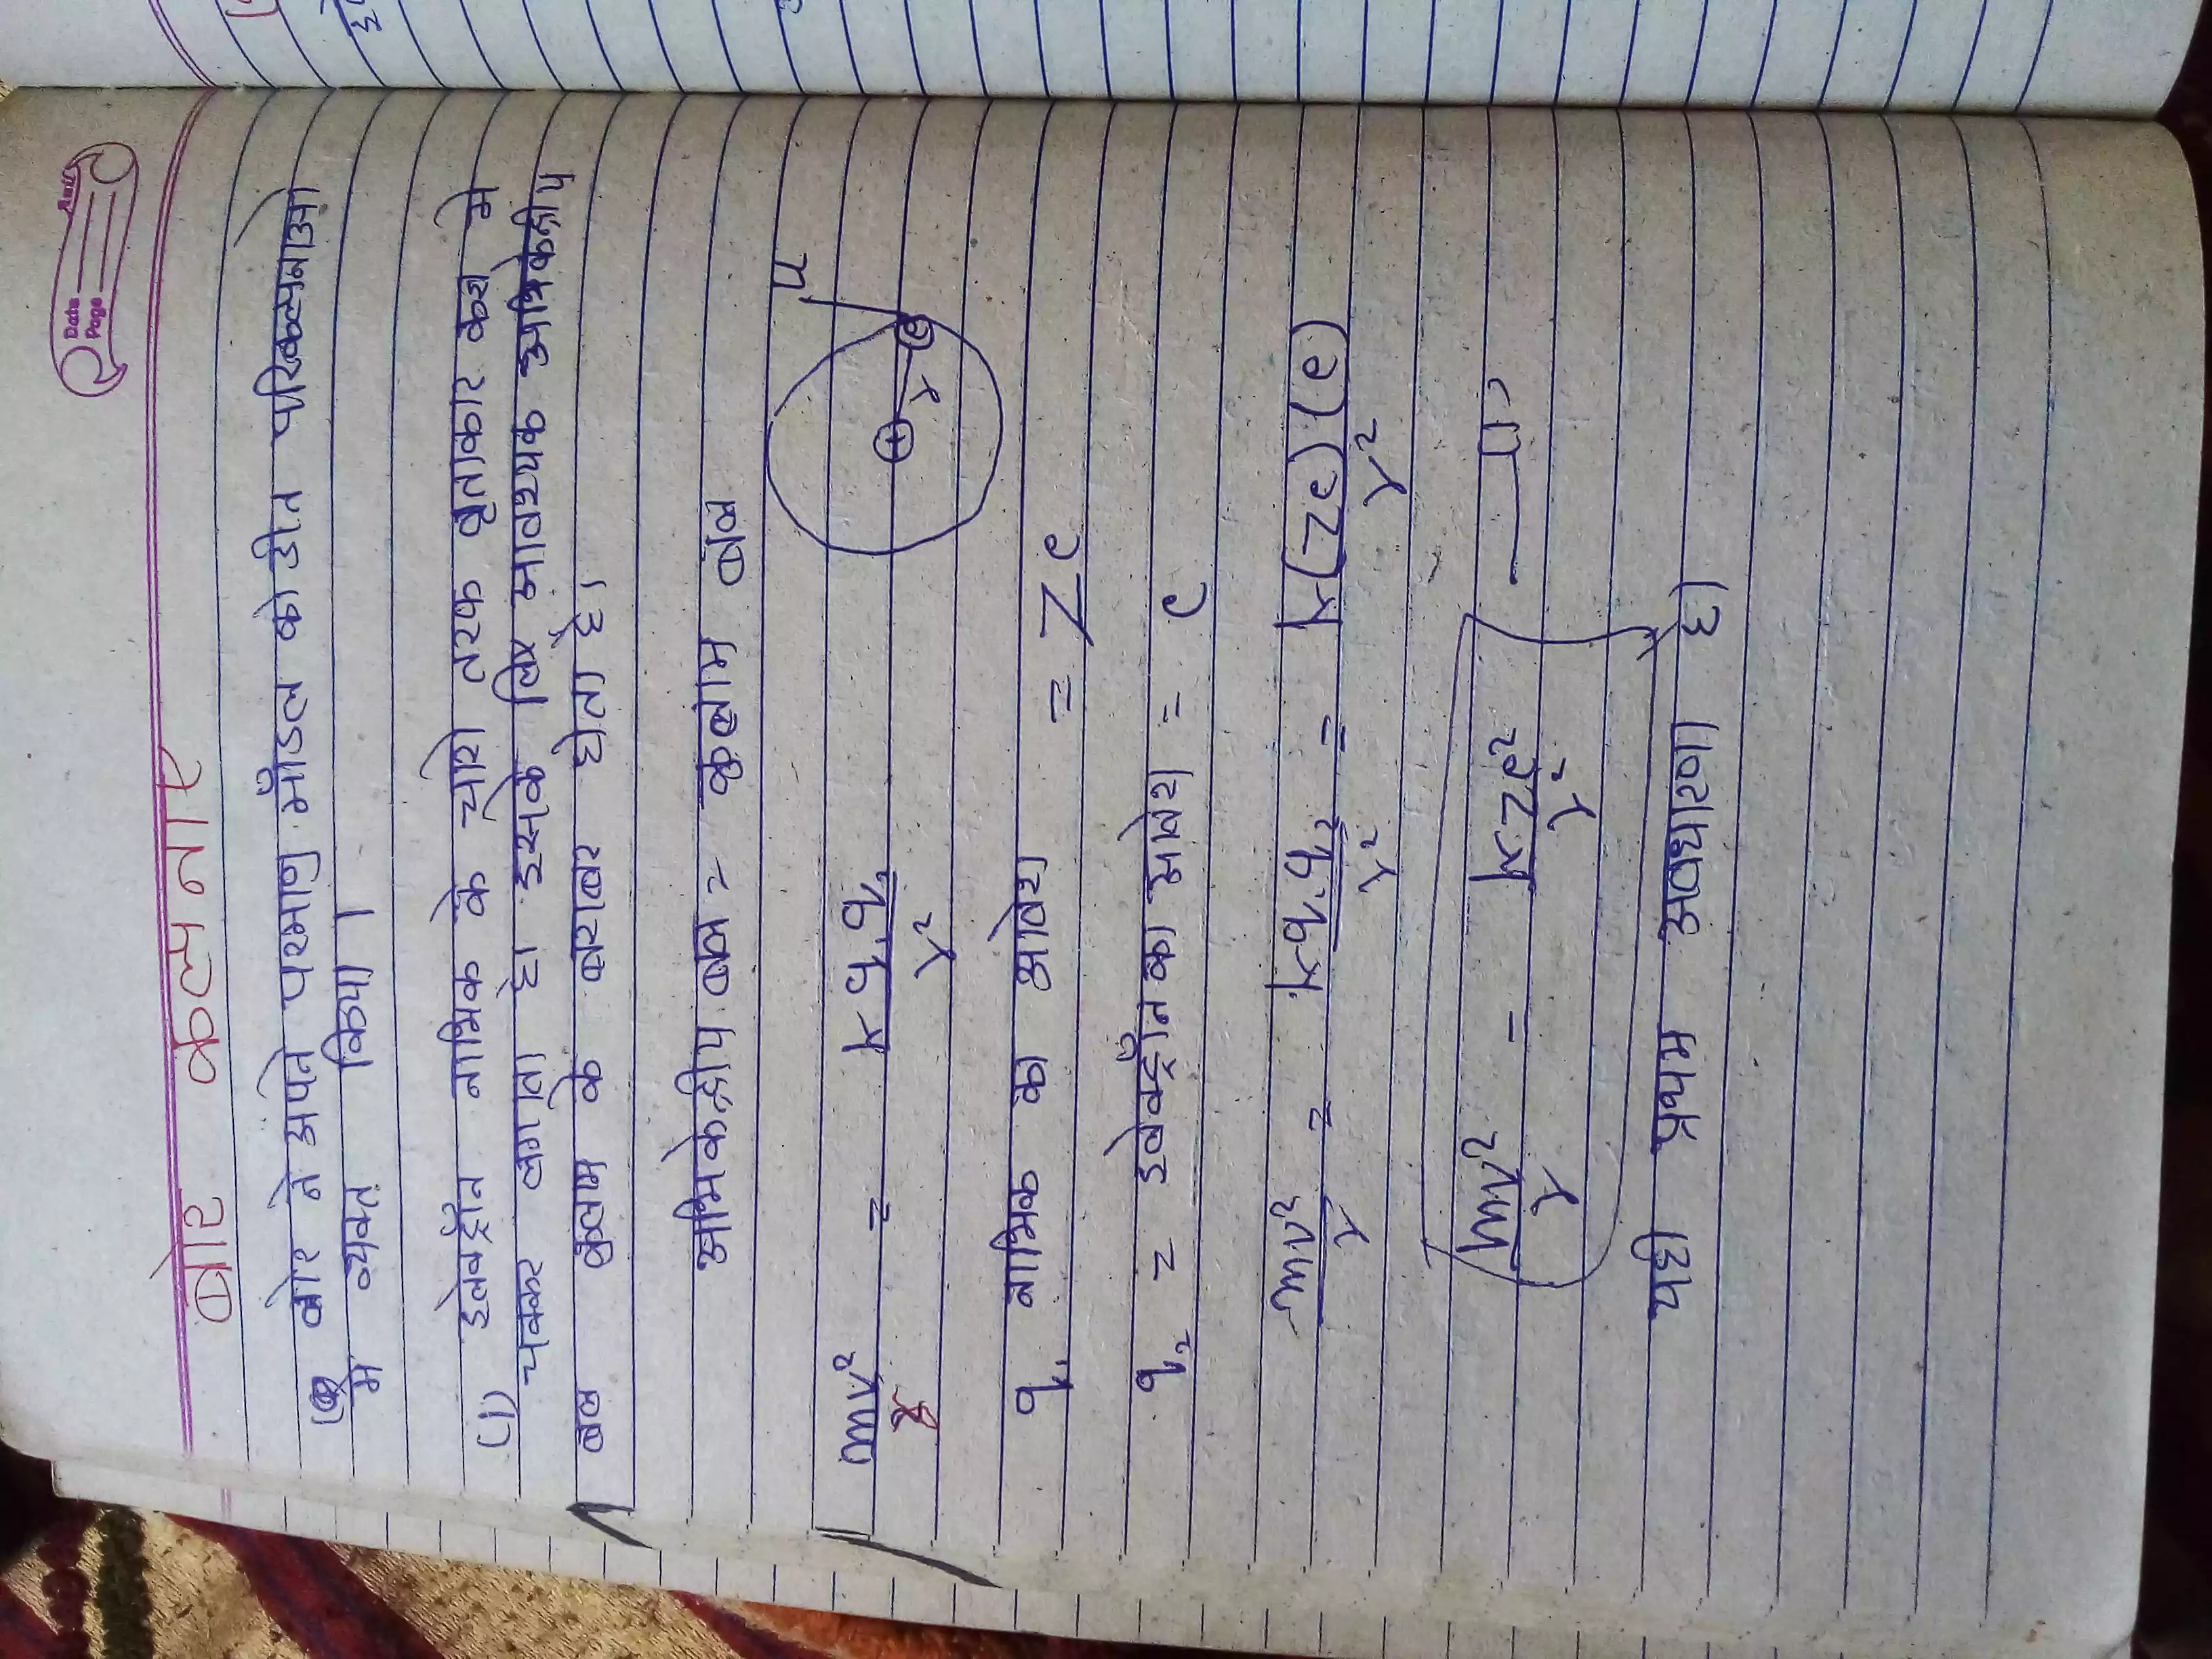 Amit
Date
Page
बोर कल्पनाऐ
बोर ने अपने परमाणु मॉडल को तीन परिकल्पनाओ
मे व्यक्त किया।
(1) इलेक्ट्रॉन नाभिक के चारो तरफ वृताकार कक्षा मे
चक्कर लगाता है। इसके लिए आवश्यक अभिकेन्द्रीय
बल कुलाम के बराबर होता है।
अभिकेन्द्रीय बल = कुलाम बल
mv²/r = k q₁q₂/r²
+ r e
q₁ नाभिक का आवेश = Ze
q₂ = इलेक्ट्रॉन का आवेश = e
mv²/r = kq₁q₂/r² = k(Ze)(e)/r²
mv²/r = kZe²/r² — (1)
यही प्रथम अवधारणा है)